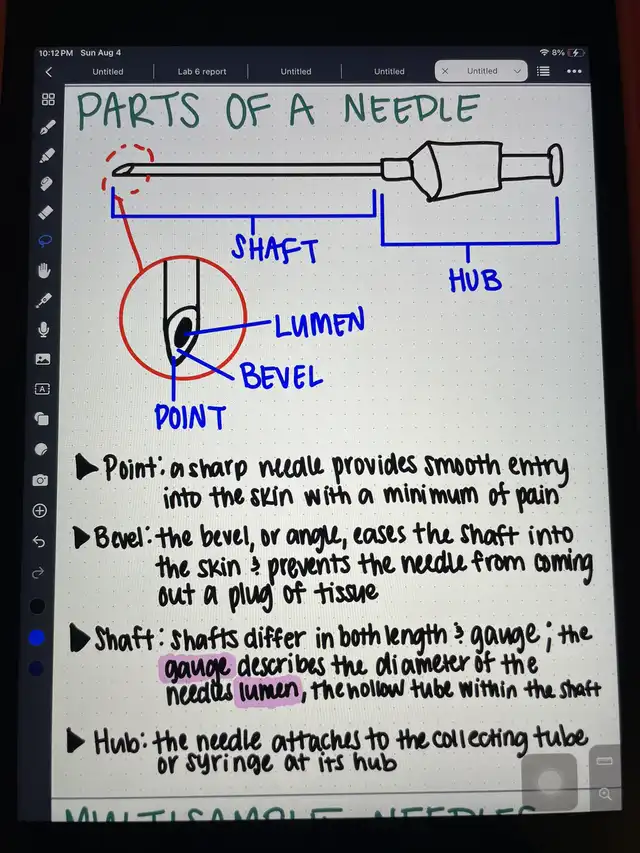 10:12 PM Sun Aug 4
8%
Untitled
Lab 6 report
Untitled
Untitled
Untitled
PARTS OF A NEEDLE
SHAFT
HUB
LUMEN
BEVEL
POINT
Point: a sharp needle provides smooth entry
into the skin with a minimum of pain
Bevel: the bevel, or angle, eases the shaft into
the skin & prevents the needle from coming
out a plug of tissue
Shaft: shafts differ in both length & gauge; the
gauge describes the diameter of the
needles lumen, the hollow tube within the shaft
Hub: the needle attaches to the collecting tube
or syringe at its hub
MULTISAMPLE NEEDLES